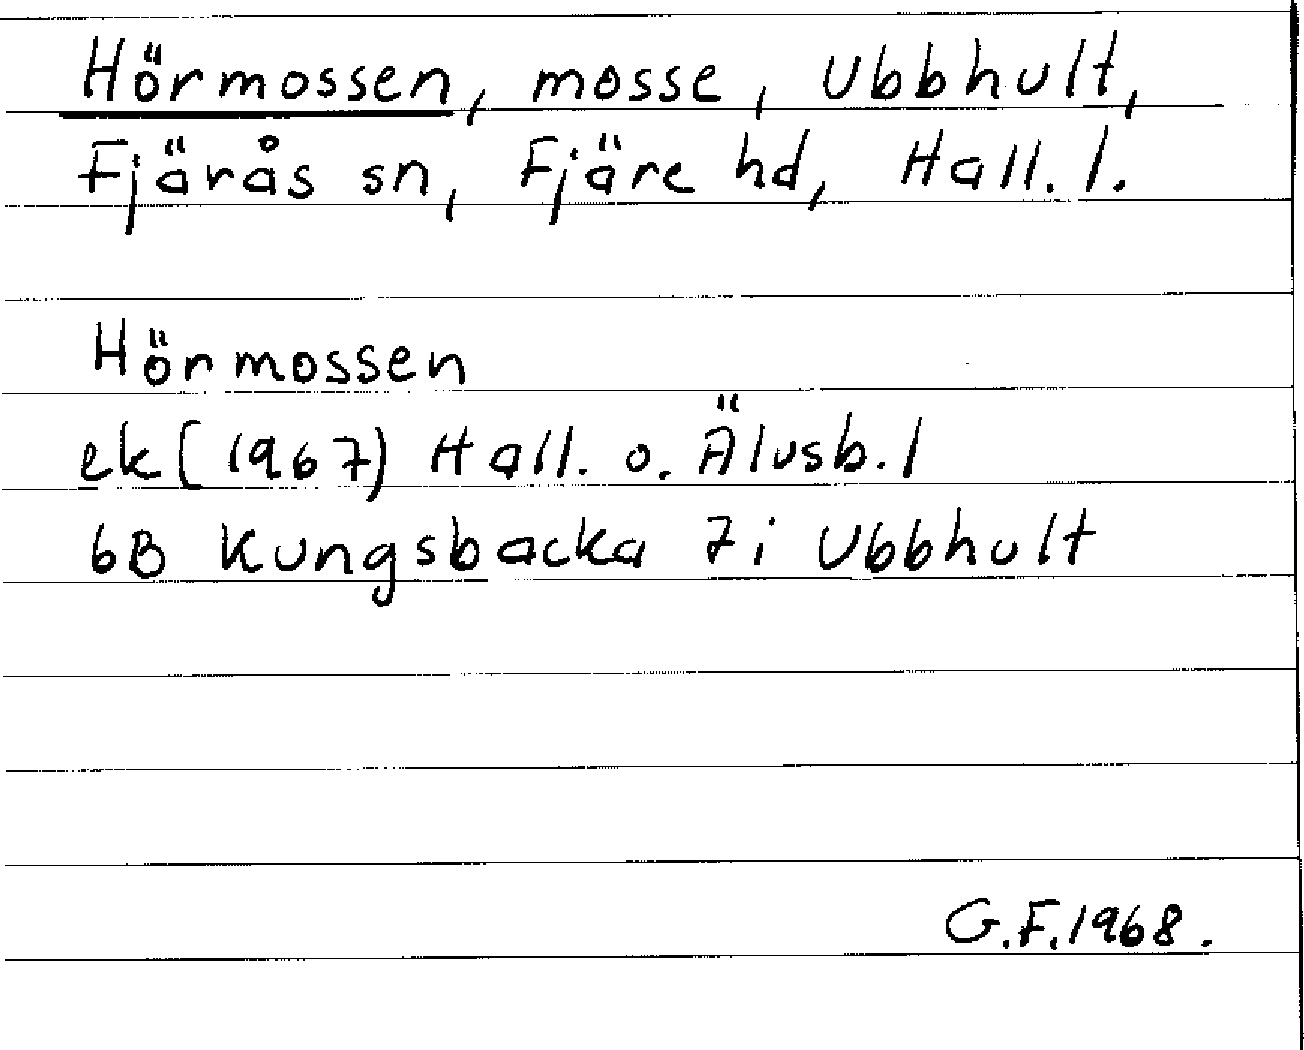 Hörmossen, mosse, Ubbhult,
Fjärås sn, Fjäre hd, Hall. l.
Hörmossen
ek (1967) Hall. o. Älvsb. l
6B Kungsbacka 7i Ubbhult
G.F. 1968.